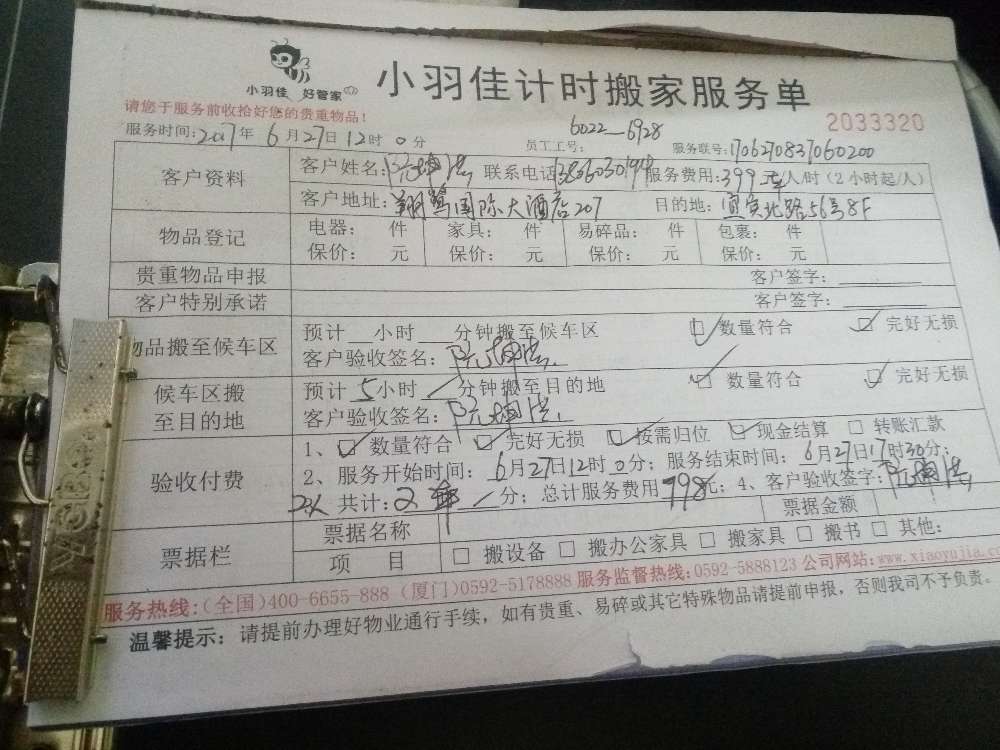 小羽佳 好管家
小羽佳计时搬家服务单
请您于服务前收拾好您的贵重物品!
2033320
服务时间:2017年6月27日12时0分 员工工号:6022—6928 服务联号:1706270837060200
客户资料 客户姓名: 联系电话 服务费用:399元/人/时(2小时起/人)
客户地址:翔鹭国际大酒店207 目的地:宜宾北路56号8F
物品登记 电器: 件 家具: 件 易碎品: 件 包裹: 件
保价: 元 保价: 元 保价: 元 保价: 元
贵重物品申报 客户签字:
客户特别承诺 客户签字:
物品搬至候车区 预计 小时 分钟搬至候车区 数量符合 完好无损
客户验收签名:
候车区搬至目的地 预计5小时 分钟搬至目的地 数量符合 完好无损
客户验收签名:
验收付费 1、 数量符合 完好无损 按需归位 现金结算 转账汇款
2、服务开始时间:6月27日12时0分;服务结束时间:6月27日17时30分;
2人 共计:2车 分;总计服务费用798元;4、客户验收签字:
票据栏 票据名称 票据金额
项 目 搬设备 搬办公家具 搬家具 搬书 其他:
服务热线:(全国)400-6655-888 (厦门)0592-5178888 服务监督热线:0592-5888123 公司网站:www.xiaoyujia.co
温馨提示:请提前办理好物业通行手续,如有贵重、易碎或其它特殊物品请提前申报,否则我司不予负责。